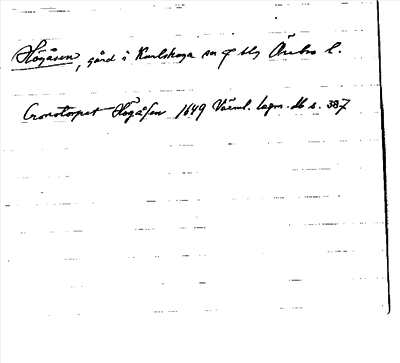 Högåsen, gård i Karlskoga sn o blg Örebro l.
Cronotorpet Högåsen 1649 Värml. lagm. db s. 387